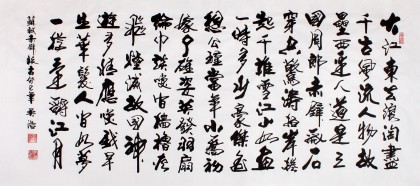 大江東去浪淘盡
千古風流人物故
壘西邊人道是三
國周郎赤壁亂石
穿空驚濤拍岸捲
起千堆雪江山如畫
一時多少豪傑遙
想公瑾當年小喬初
嫁了雄姿英發羽扇
綸巾談笑間檣櫓
灰飛煙滅故國神
遊多情應笑我早
生華髮人間如夢
一樽還酹江月
蘇軾赤壁懷古